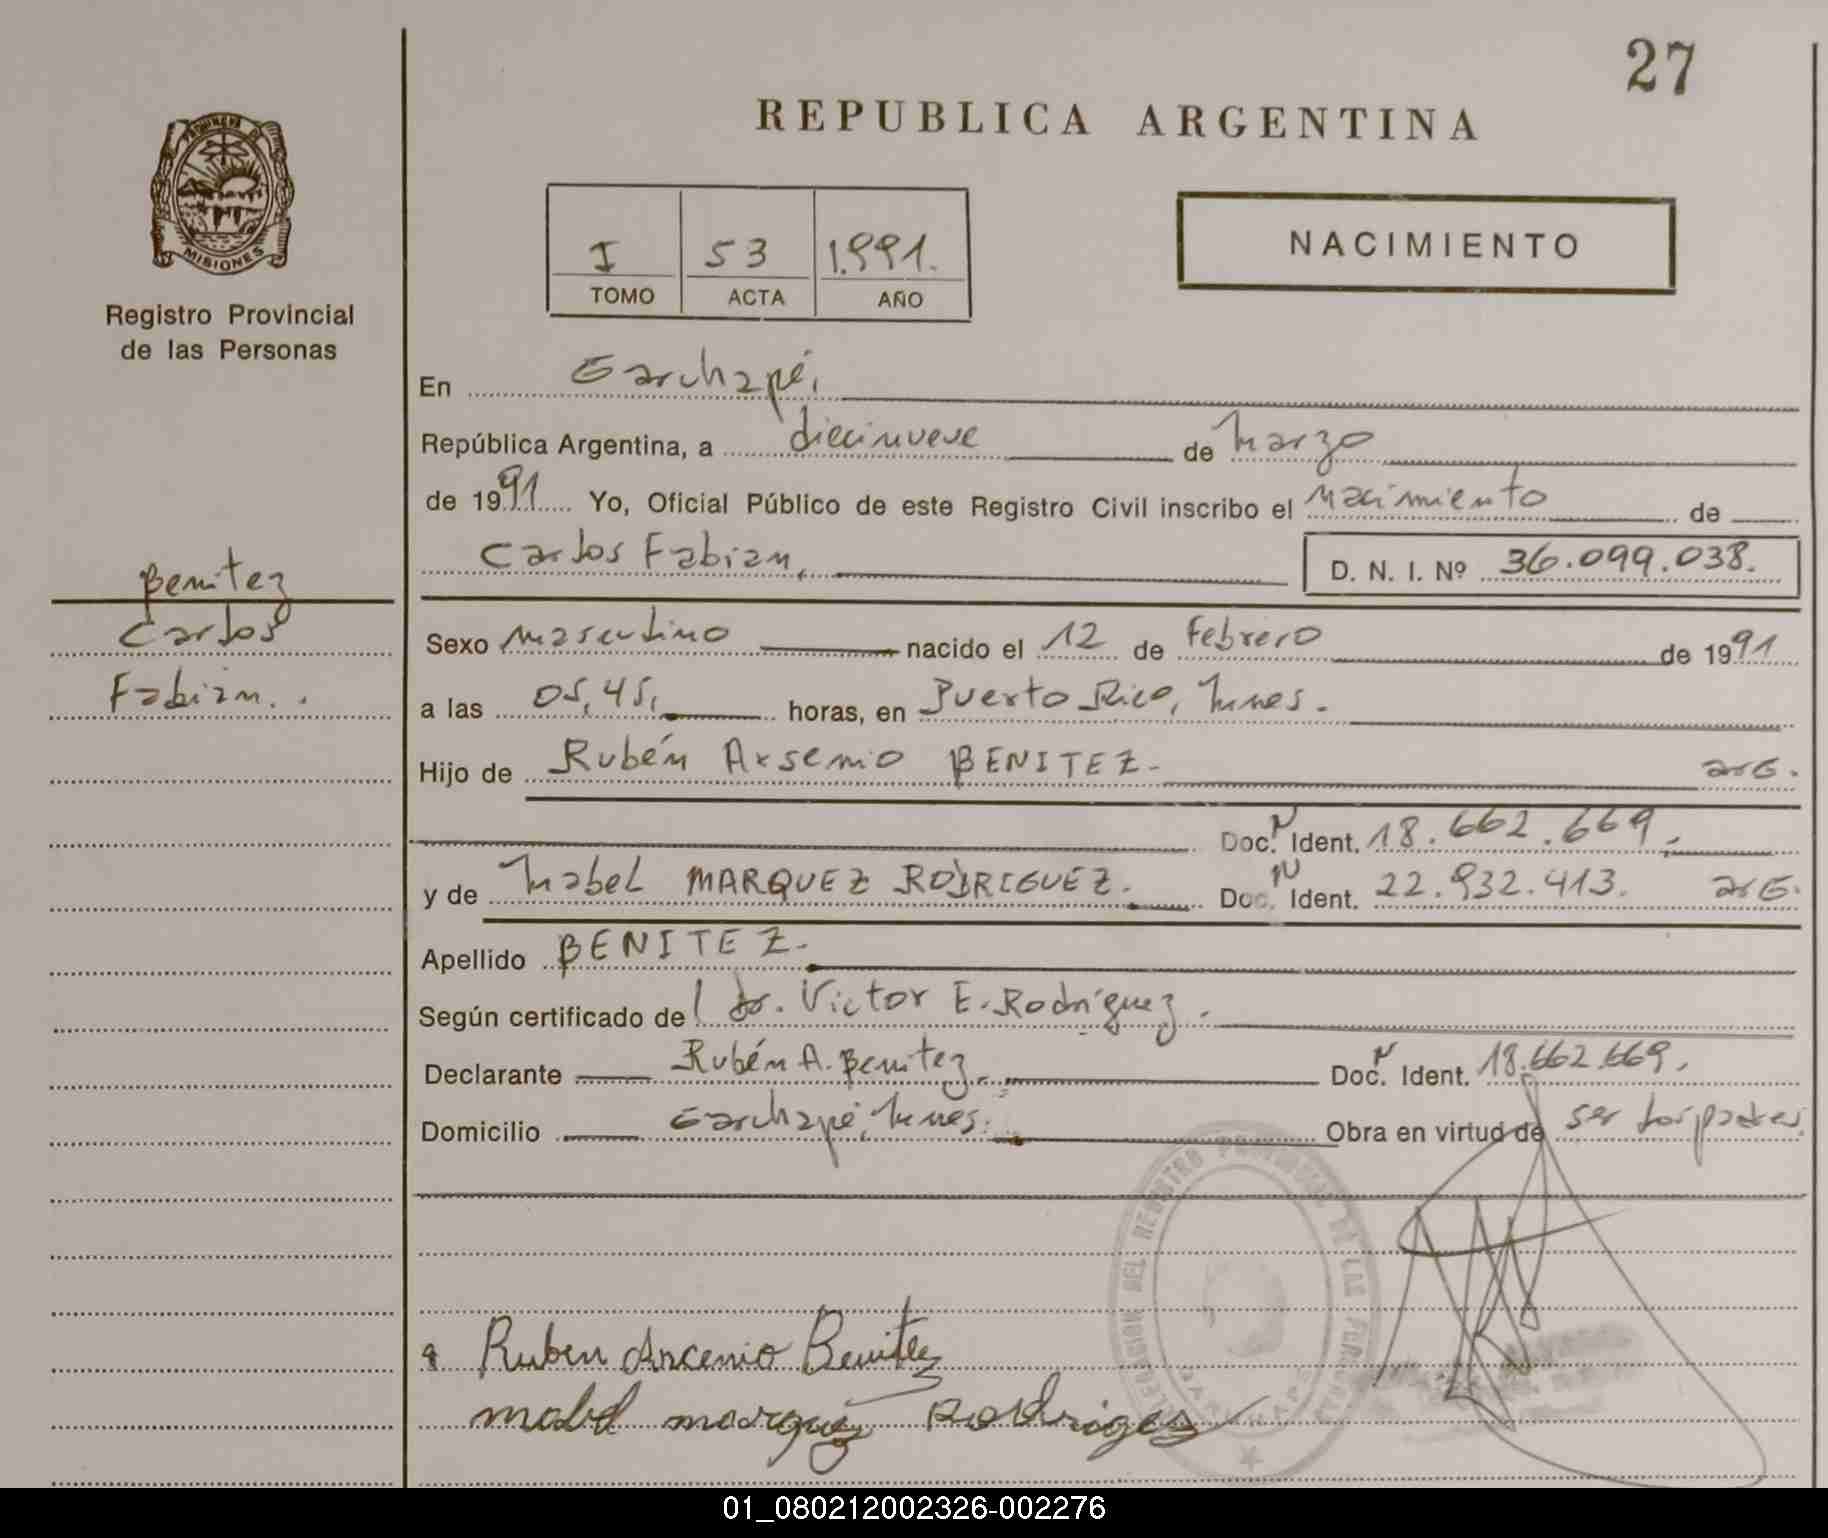 27
REPUBLICA ARGENTINA
PROVINCIA DE
MISIONES
Registro Provincial
de las Personas
I 53 1.991.
TOMO ACTA AÑO
NACIMIENTO
En Garuhapé,
República Argentina, a diecinueve de marzo
de 1991 Yo, Oficial Público de este Registro Civil inscribo el nacimiento de
Carlos Fabian, D. N. I. Nº 36.099.038.
Benitez
Carlos
Fabián..
Sexo masculino nacido el 12 de Febrero de 1991
a las 05,45, horas, en Puerto Rico, Mnes.
Hijo de Rubén Arsenio BENITEZ- arg.
Doc. N Ident. 18.662.669,
y de Mabel MARQUEZ RODRIGUEZ. Doc. N Ident. 22.932.413. arg.
Apellido BENITEZ-
Según certificado de Dr. Victor E. Rodríguez.
Declarante Rubén A. Benitez, Doc. N Ident. 18.662.669.
Domicilio Garuhapé, Mnes. Obra en virtud de ser los padres.
DELEGACION DEL REGISTRO PROVINCIAL DE LAS PERSONAS
GARUHAPE
Ruben Arcenio Benitez
mabel marquez Rodrigez
01_080212002326-002276